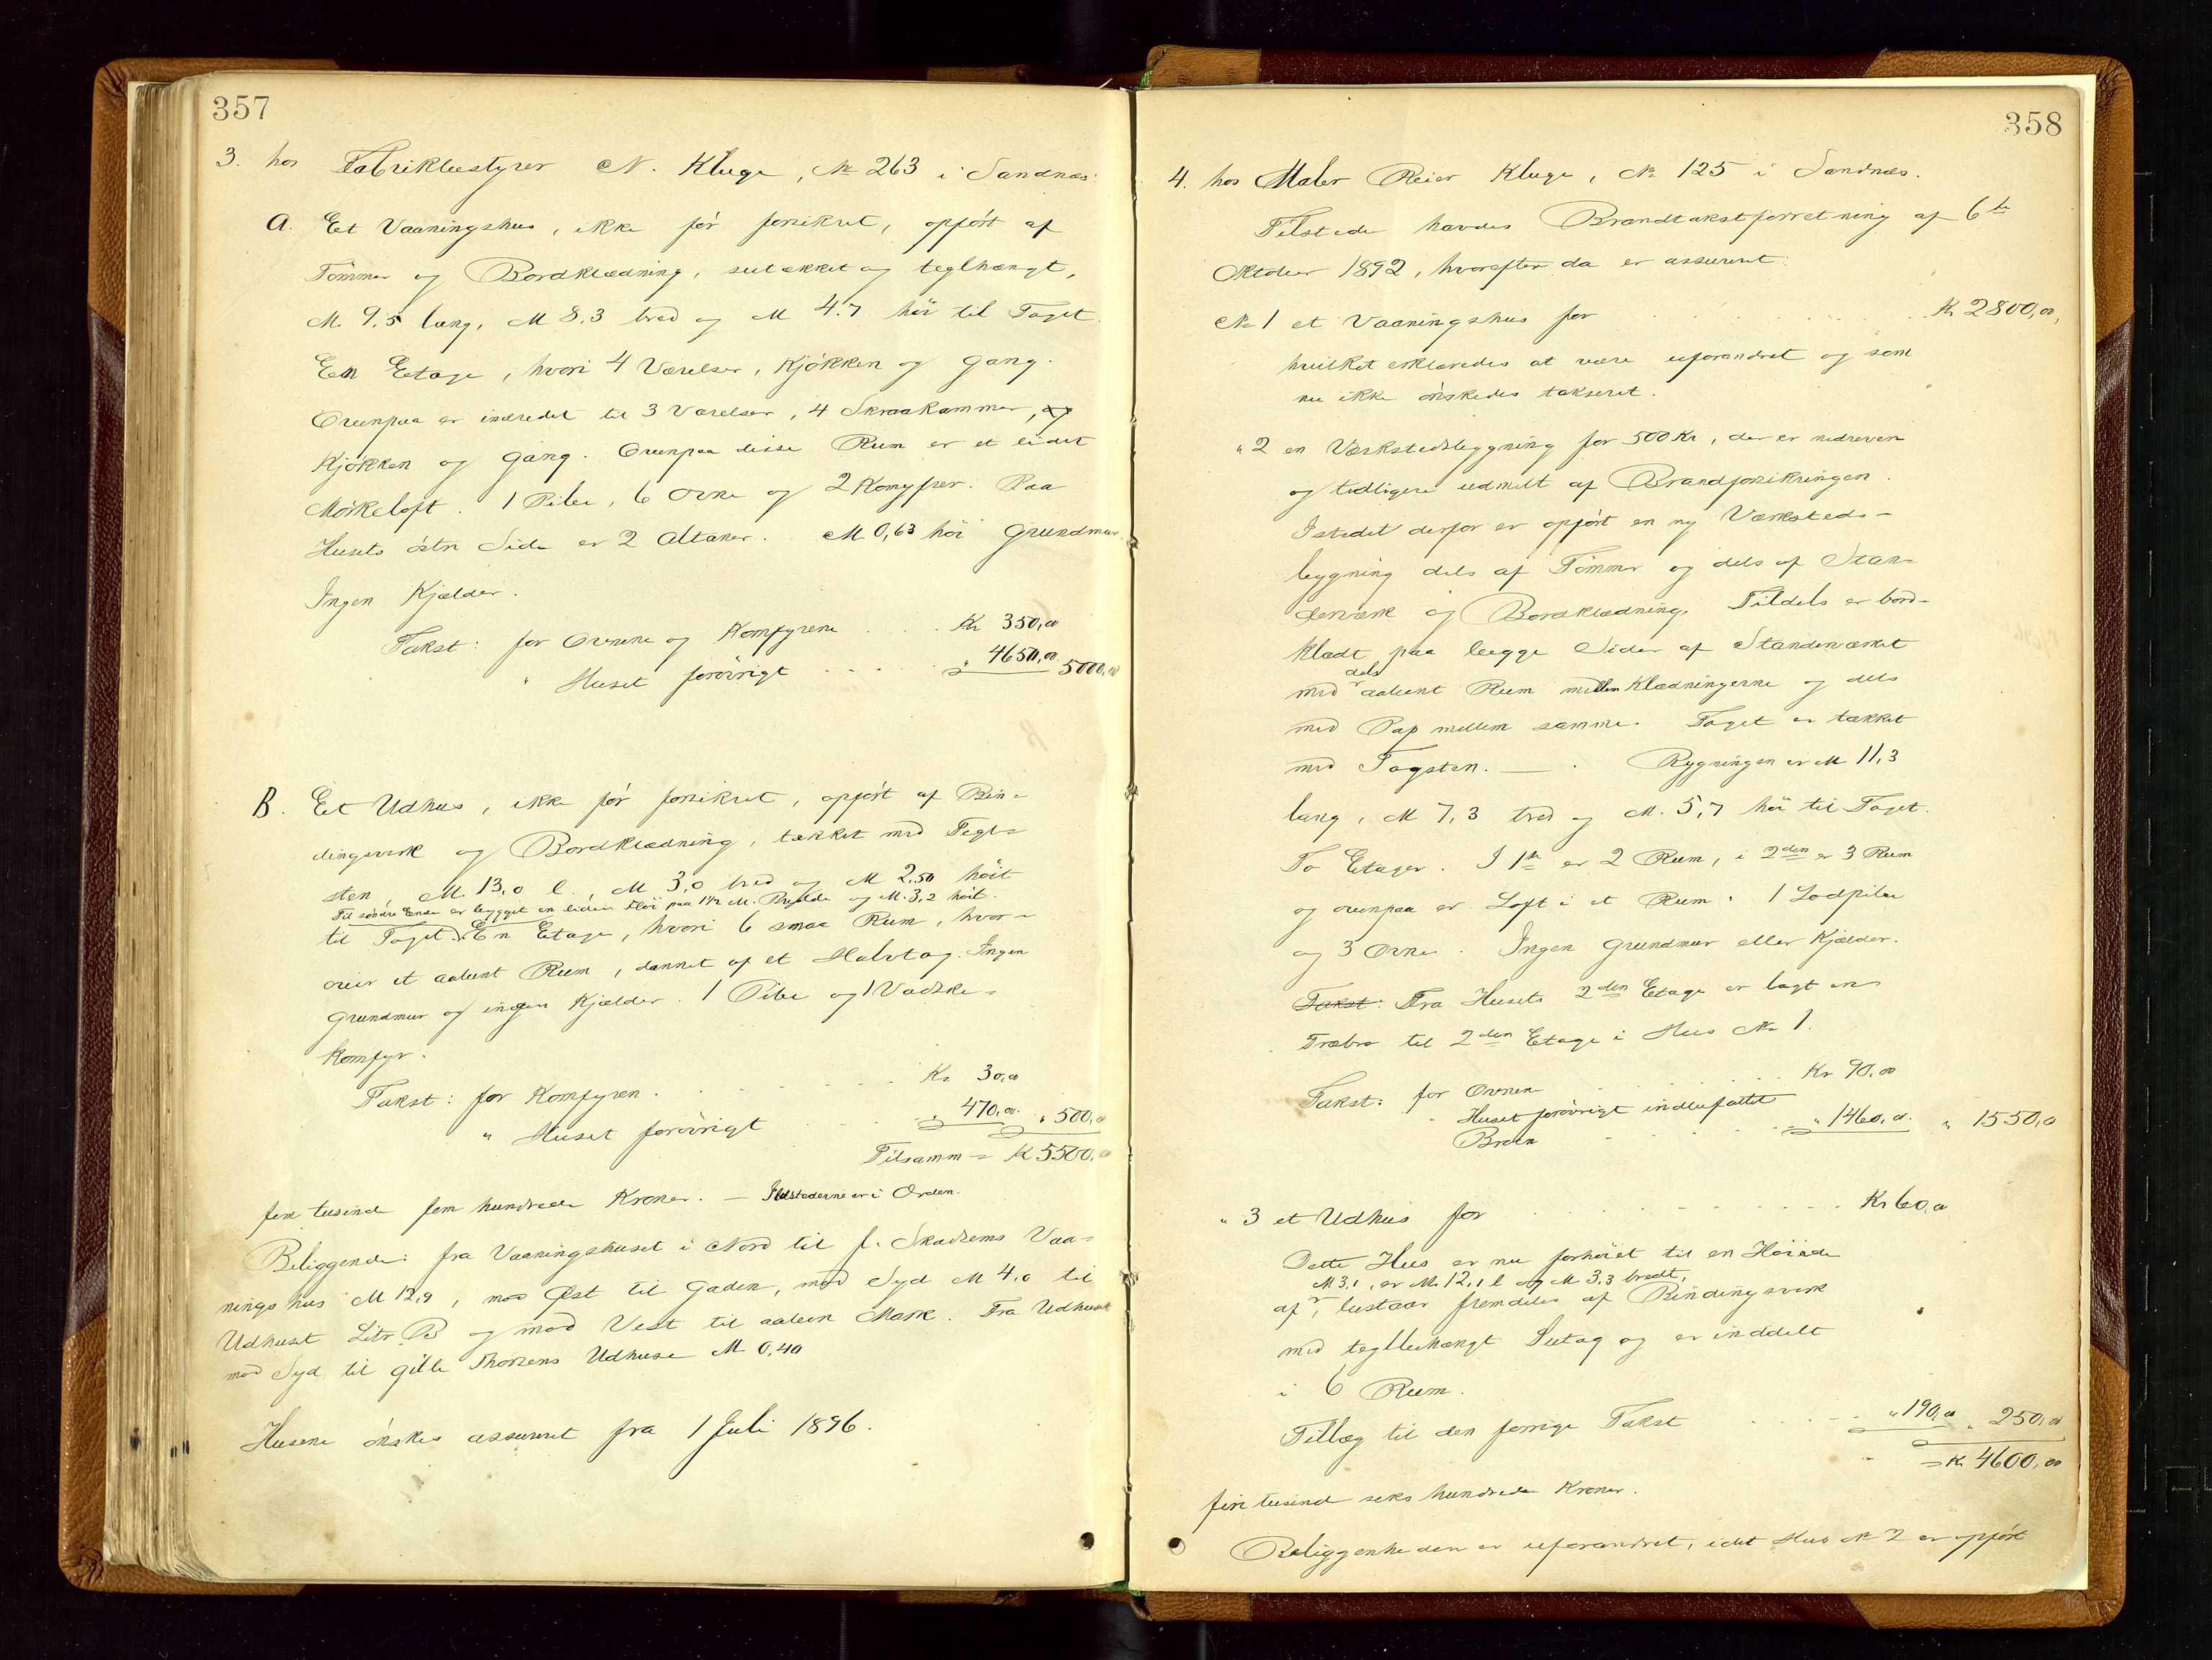 357
3. hos Fabrikbestyrer N. Kluge, № 263 i Sandnæs:
A. Et Vaaningshus, ikke før forsikret, opført af
Tömmer og Bordklædning, sutækket og teglhængt,
M. 9,5 lang, M 8,3 bred og M 4.7 höi til Taget.
En Etage, hvori 4 Værelser, Kjökken og Gang.
Ovenpaa er indredet til 3 Værelser, 4 Skraakammer, og
Kjökken og Gang. Ovenpaa disse Rum er et lidet
Mörkeloft. 1 Pibe, 6 Ovne og 2 Komfyrer. Paa
Husets östre Side er 2 Altaner. M. 0,63 höi Grundmur.
Ingen Kjælder.
Takst: for Ovnene og Komfyrene . . Kr 350,00
" Huset forövrigt . . . . " 4650,00 5000,00
B. Et Udhus, ikke för forsikret, opfört af Bin-
dingsverk og Bordklædning, tækket med Tegl-
sten, M. 13,0 l., M 3,0 bred og M 2,50 höit
Til söndre Ende er bygget en liden Flöi paa 1½ M. Bredde og M. 3,2 höit.
til Taget. En Etage, hvori 6 smaa Rum, hvor-
over et aabent Rum, dannet af et Halvtag. Ingen
Grundmur og ingen Kjælder. 1 Pibe og 1 Vadske-
komfyr.
Takst: for Komfyren . . . . Kr 30,00
" Huset forövrigt . . . " 470,00 " 500,00
Tilsamm = K 5500,00
fem tusinde fem hundrede Kroner. — Ildstederne er i Orden.
Beliggende: fra Vaaningshuset i Nord til f. Skadsems Vaa-
ningshus M 12,9, mod Øst til Gaden, mod Syd M 4,0 til
Udhuset Litr. B og mod Vest til aaben Mark. Fra Udhuset
mod Syd til Gitle Thorsens Udhuse M 0,40
Husene önskes assureret fra 1 Juli 1896.
358
4. hos Maler Reier Kluge, № 125 i Sandnæs.
Tilstede havdes Brandtakstforretning af 6te
Oktober 1892, hvorefter da er assureret:
№ 1 et Vaaningshus for . . . . Kr 2800,00,
hvilket erklæredes at være uforandret og som
nu ikke önskedes takseret.
" 2 en Værkstedsbygning for 500 Kr, der er nedreven
og tidligere udmeldt af Brandforsikringen.
Istedet derfor er opfört en ny Værksteds-
bygning dels af Tömmer og dels af Stan-
derværk og Bordklædning. Tildels er bord-
klædt paa begge Sider af Standerværket
dels
med aabent Rum mellem Klædningerne og dels
med Pap mellem samme. Taget er tækket
med Tagsten. — . Bygningen er M 11,3
lang, M 7,3 bred og M. 5,7 höi til Taget.
To Etager. I 1ste er 2 Rum, i 2den er 3 Rum
og ovenpaa er Loft i et Rum. 1 Lodpibe
og 3 Ovne. Ingen Grundmur eller Kjælder.
Takst: Fra Husets 2den Etage er lagt en
Træbro til 2den Etage i Hus № 1.
Takst: for Ovnen . . . . Kr 90,00
" Huset forövrigt indbefattet
Broen . . . . " 1460,00. " 1550,00
" 3 et Udhus for . . . . . . Kr 60,00
Dette Hus er nu forhöiet til en Höide
M 3,1, er M. 12,1 l og M 3,3 bredt,
af, bestaar fremdeles af Bindingsverk
med teglbehængt Sutag og er inddelt
i 6 Rum.
Tillæg til den forrige Takst . . . . " 190,00 " 250,00
= K. 4600,00
fire tusinde seks hundrede Kroner.
Beliggenheden er uforandret, idet Hus № 2 er opfört